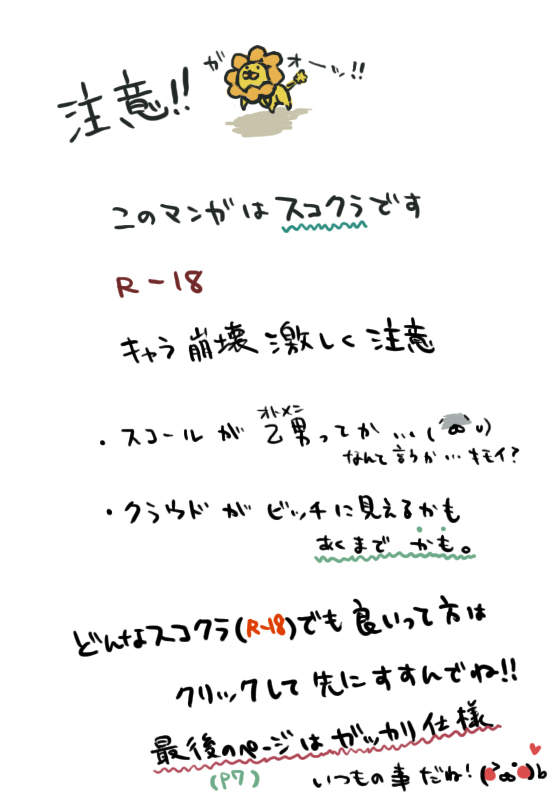 ガオーッ!!
注意!!
このマンガは スコクラです
R-18
キャラ崩壊 激しく 注意
・スコールが 乙男ってか…(´ω`υ)
オトメン
なんて言うか…キモイ?
・クラウドが ビッチに見えるかも
あくまで かも。
どんなスコクラ(R-18)でも良いって方は
クリックして 先に すすんでね!!
最後のページは ガッカリ仕様
(P7)
いつもの事だね!